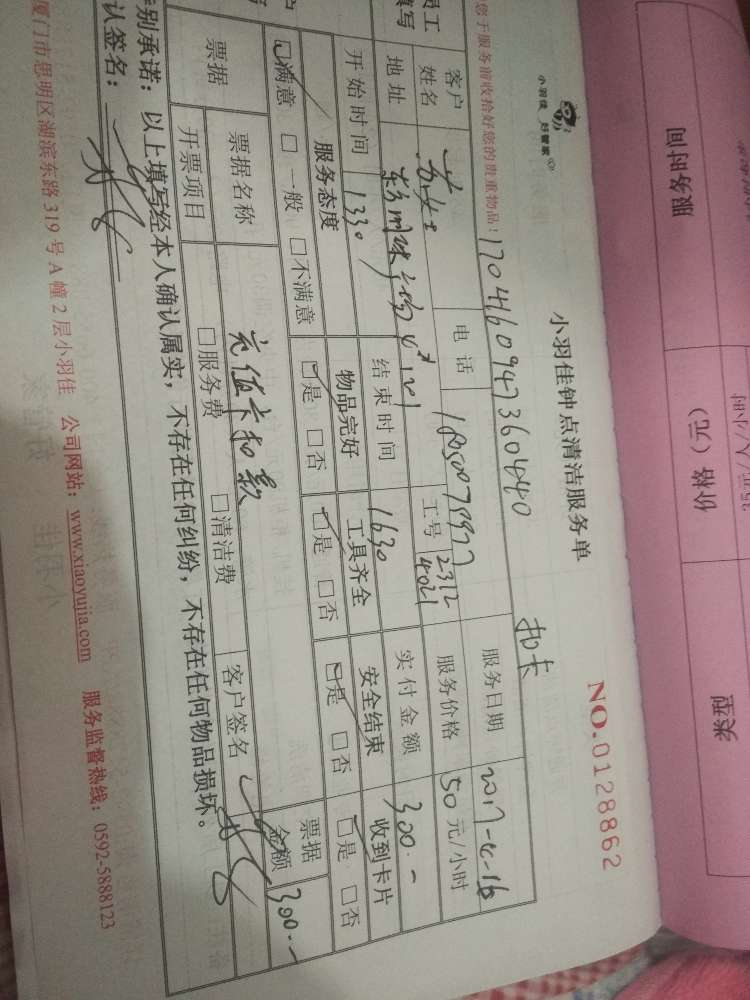 服务时间
价格（元）
类型
小羽佳 好管家
小羽佳钟点清洁服务单
NO.0128862
您于服务前收拾好您的贵重物品！
扣卡
客户
姓名
电话
工号
2312
4021
服务日期
2017-4-16
地址
服务价格
50元/小时
开始时间
1330
结束时间
1630
实付金额
300.-
服务态度
物品完好
工具齐全
安全结束
收到卡片
满意 一般 不满意
是 否
是 否
是 否
是 否
票据
票据名称
充值卡扣款
票据
金额
300.-
开票项目
服务费
清洁费
客户签名
特别承诺：以上填写经本人确认属实，不存在任何纠纷，不存在任何物品损坏。
认签名：
厦门市思明区湖滨东路319号A幢2层小羽佳 公司网站：www.xiaoyujia.com 服务监督热线：0592-5888123